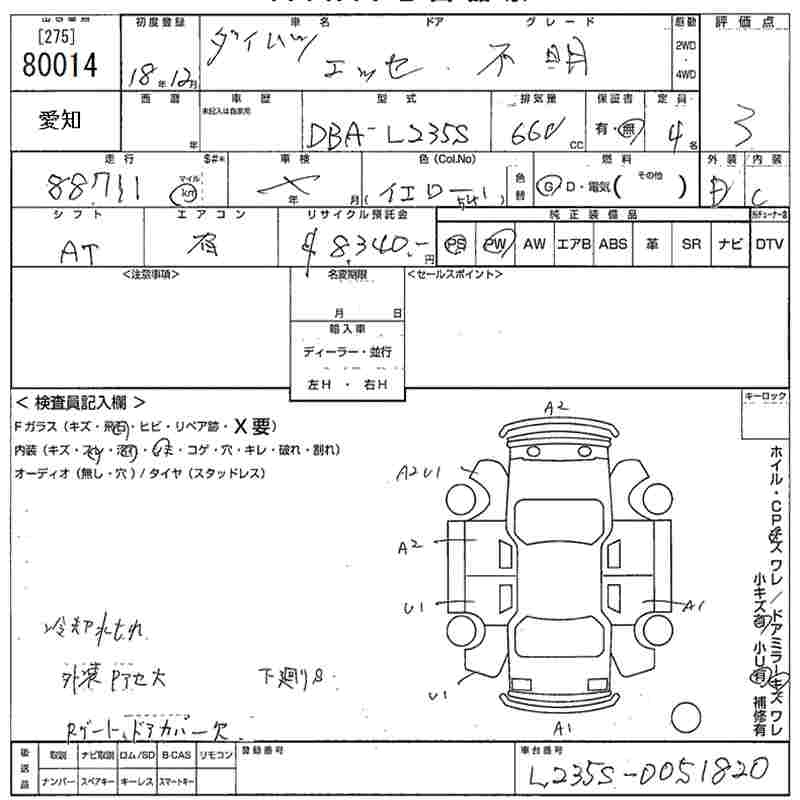 [275]
80014
愛知
初度登録 車名 ドア グレード 駆動 評価点
18年 12月 ダイハツ エッセ 不明 2WD・4WD 3
西暦 車歴 型式 排気量 保証書 定員
未記入は自家用
年 DBA-L235S 660 CC 有・無 4名
走行 $#* 車検 色(Col.No) 燃料 外装 内装
88,711 マイル km 年 月 (イエロー 色替 G D・電気( その他 ) C
シフト エアコン リサイクル預託金 純正装備品
AT 有 ¥8,340.- 円 PS PW AW エアB ABS 革 SR ナビ DTV
<注意事項> 名変期限 <セールスポイント>
月 日
輸入車
ディーラー・並行
左H ・ 右H
< 検査員記入欄 > キーロック
Fガラス (キズ・飛石・ヒビ・リペア跡・X要)
内装 (キズ・ ・コゲ・穴・キレ・破れ・割れ)
オーディオ (無し・穴) / タイヤ (スタッドレス)
A2
A2 U1
A2
U1 A1
U1
A1
ホイル・CPキズ ワレ / ドアミラーキズ ワレ
小キズ有 / 小U有 補修有
冷却水もれ
外装Pアセ大 下廻りS
Rゲート、ドアカバー欠
後送品 取説 ナビ取説 ロム/SD B-CAS リモコン 登録番号 車台番号
ナンバー スペアキー キーレス スマートキー L235S-0051820